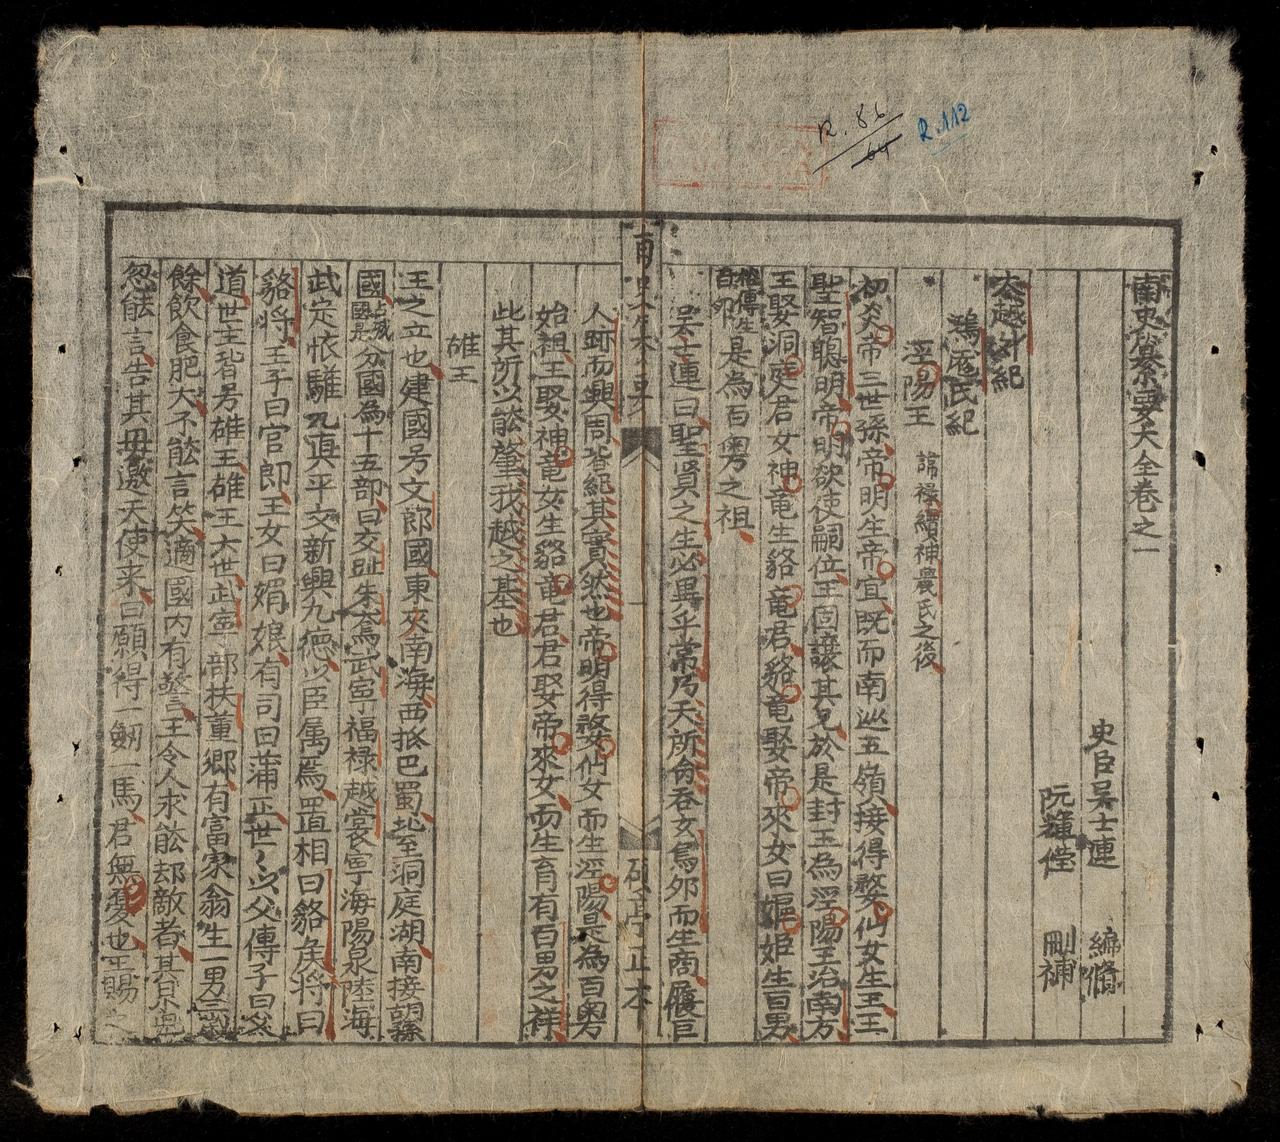 R. 86
64
R.112
南史纂要大全卷之一
史臣吳士連 編脩
阮輝 刪補
大越外紀
鴻厖氏紀
涇陽王 諱祿續神農氏之後
初炎帝三世孫帝明生帝宜既而南巡五嶺接得婺仙女生王王
聖智聰明帝明欲使嗣位王固讓其兄於是封王為涇陽王治南方
王娶洞庭君女神竜生貉竜君貉竜娶帝來女曰嫗姬生百男
俗傳生百卵是為百粤之祖
吳士連曰聖賢之生必異乎常乃天所命吞玄鳥卵而生商履巨
人跡而興周皆紀其實然也帝明得婺仙女而生涇陽是為百粤
始祖王娶神竜女生貉竜君君娶帝來女而生育有百男之祥
此其所以能肇我越之基也
雄王
王之立也建國号文郎國東夾南海西抵巴蜀北至洞庭湖南接胡孫
國占城國是分國為十五部曰交趾朱鳶武寧福禄越裳寧海陽泉陸海
武定懷驩九真平文新興九德以臣属焉置相曰貉侯將曰
貉將王子曰官郎王女曰媚娘有司曰蒲正世〻以父傳子曰父
道世主皆号雄王雄王六世武寧部扶董鄉有富家翁生一男三歲
餘飲食肥大不能言笑適國内有警王令人求能却敵者其
忽能言告其母邀天使來曰願得一劔一馬君無憂也王賜之
南史
碩亭正本